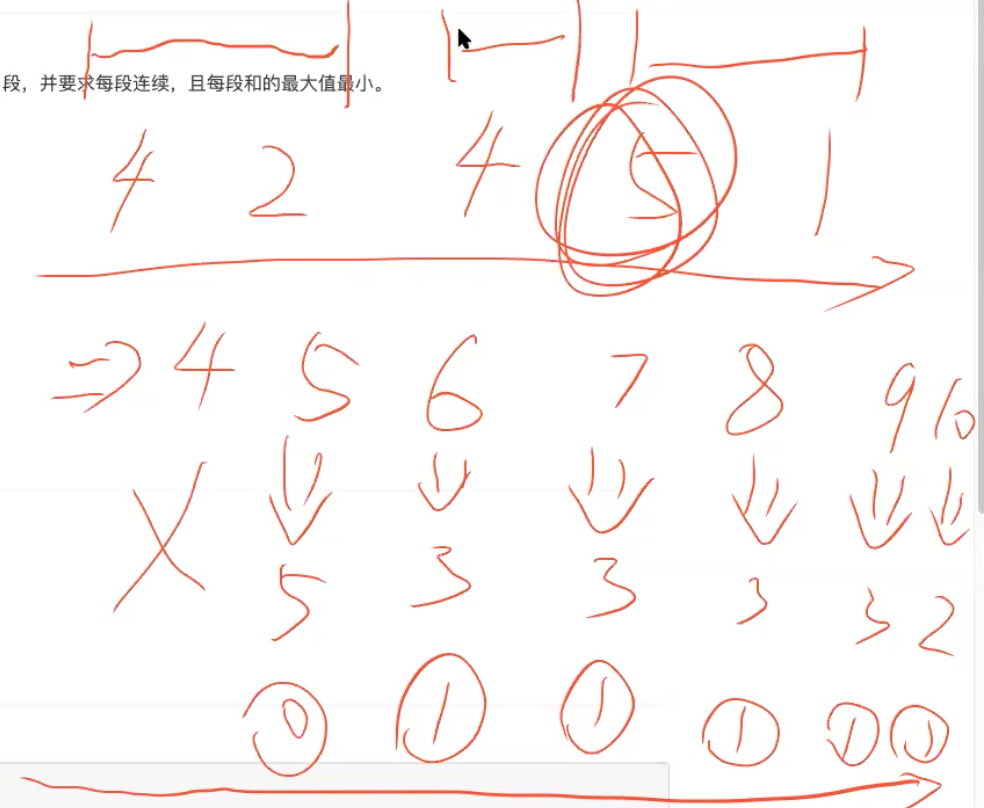 段，并要求每段连续，且每段和的最大值最小。
4 2 4 5 1
⇒ 4 5 6 7 8 9 10
X ↓ ↓ ↓ ↓ ↓ ↓
5 3 3 3 3 2
0 1 1 1 1 1